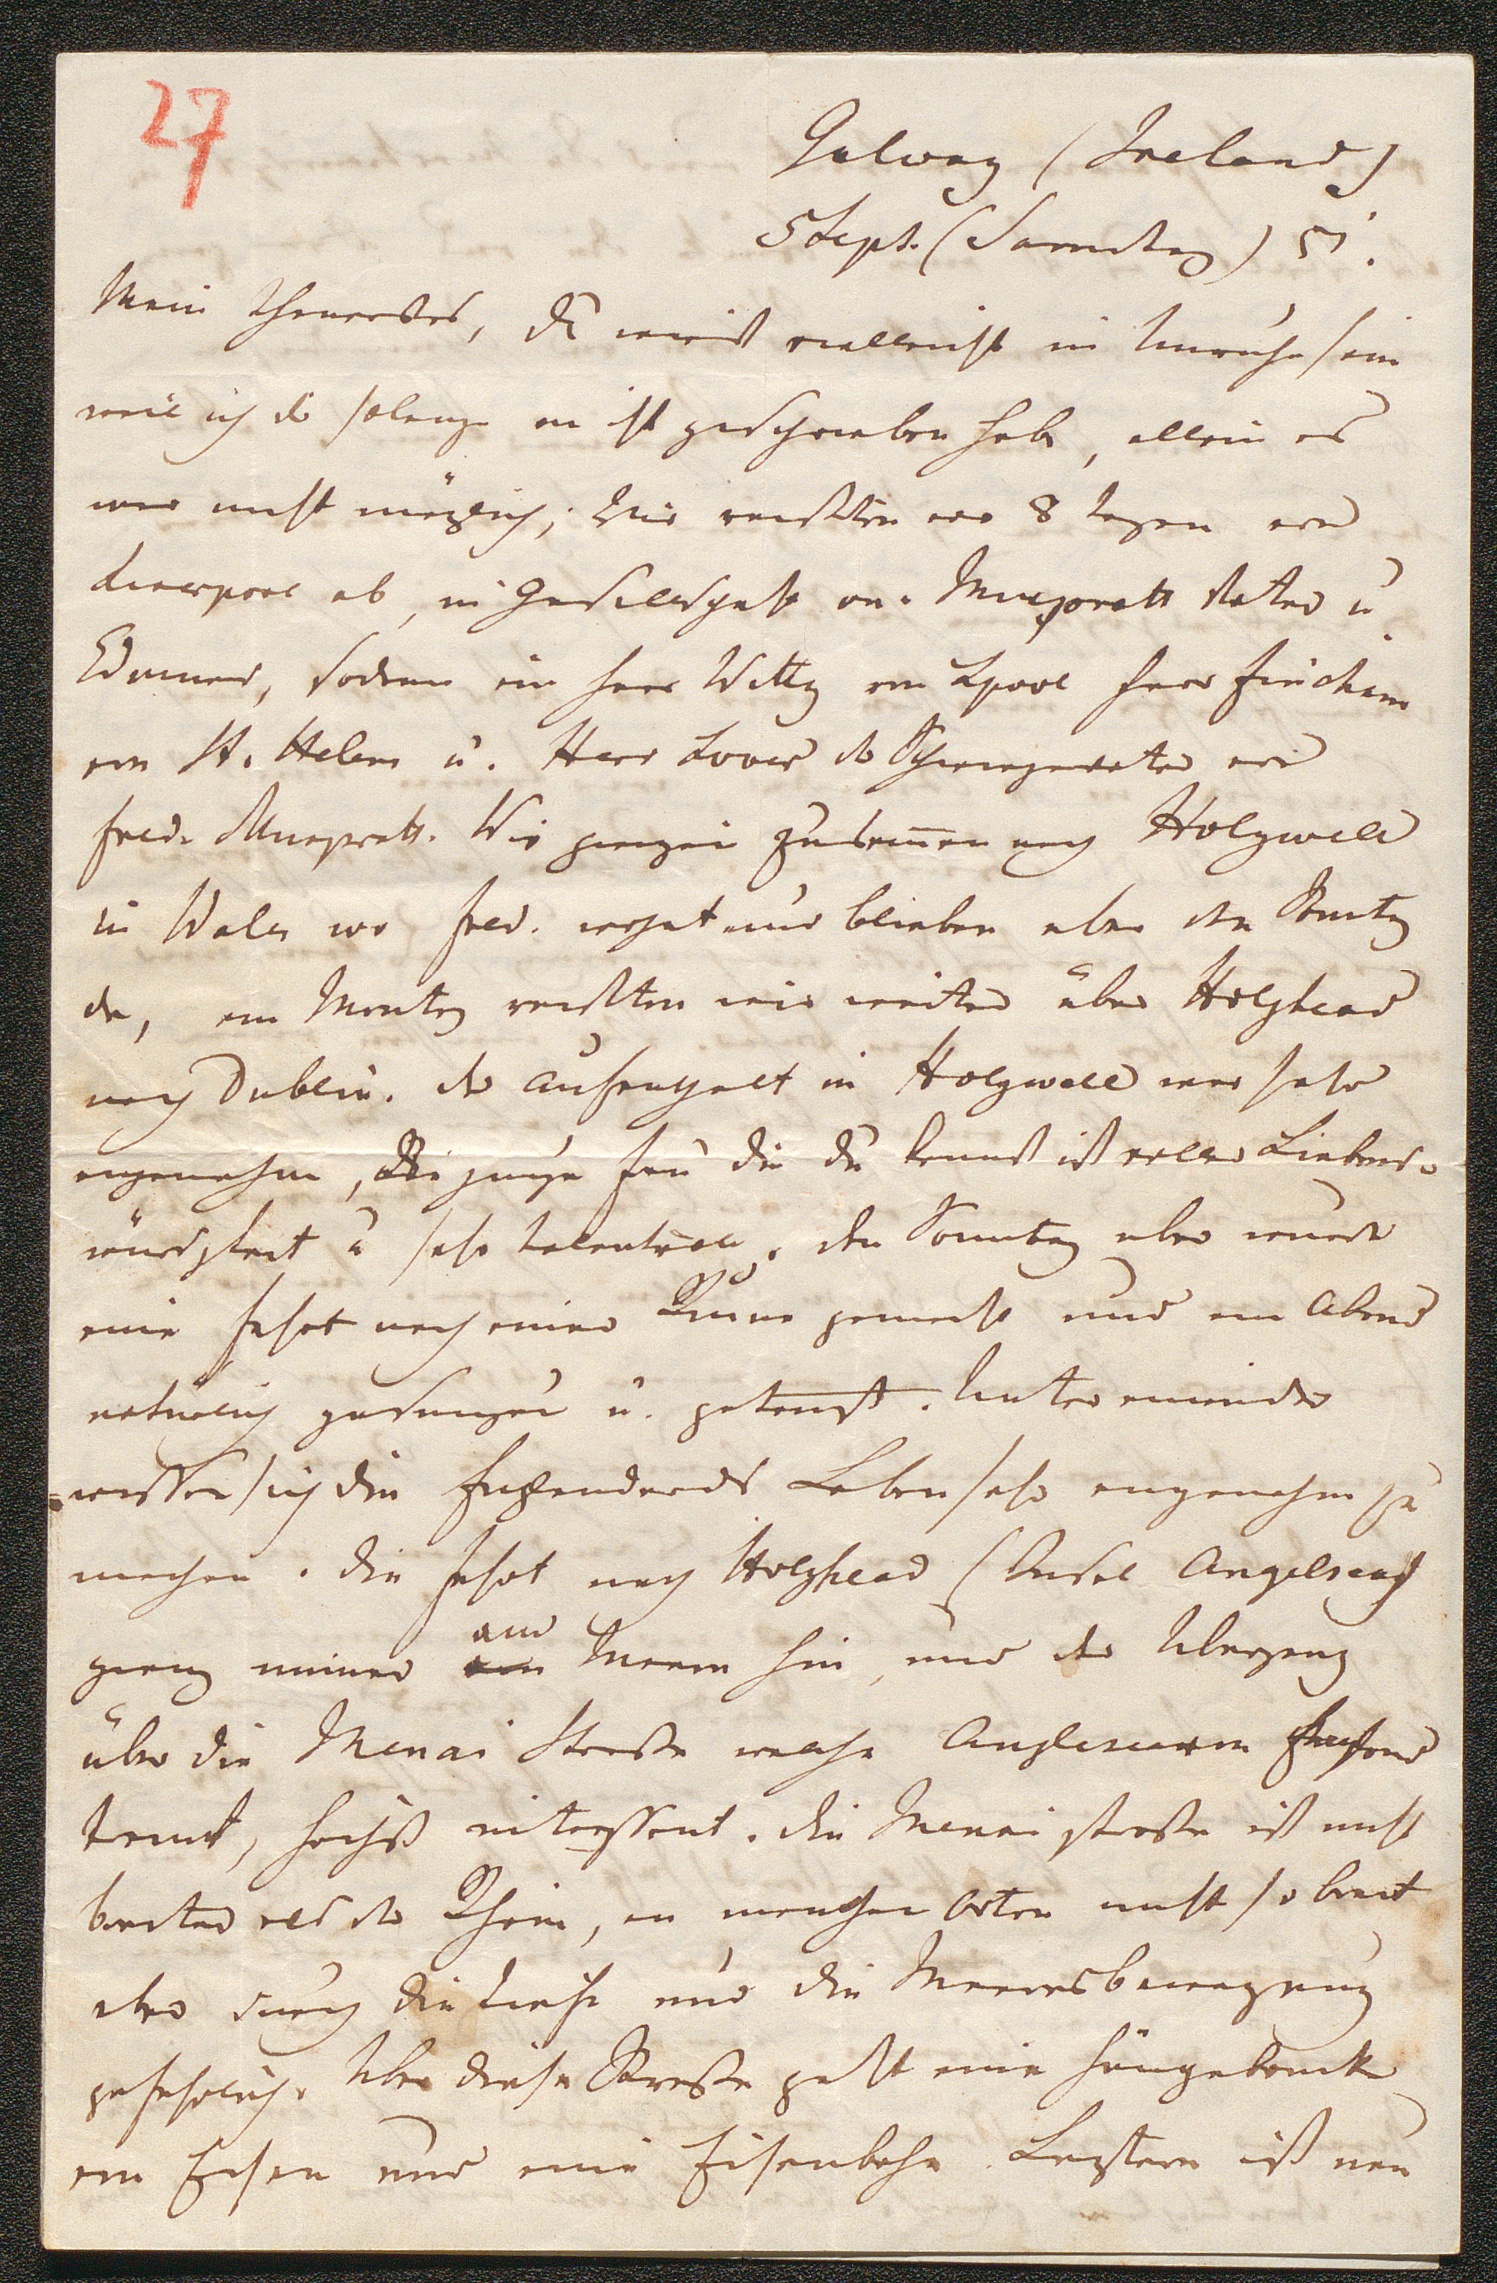 27
Galway (Ireland)
5 Sept. (Samstag) 51.
Mein theuerstes, du wirst vielleicht in Unruhe sein
weil ich dir solange nicht geschrieben habe, allein es
war nicht möglich; Wir reisten vor 8 Tagen von
Liverpool ab, in Gesellschaft von Muspratt Vater u
Edmund, sodann ein Herr Witty von Lpool Herr Fincham
von St. Helens u. Herr der Schwiegervater von
Fred. Muspratt. Wir gingen zusammen nach Holywell
in Wales wo Fred. wohnt und blieben über den Sontag
da, am Montag reisten wir weiter über Holyhead
nach Dublin. der Aufenthalt in Holywell war sehr
angenehm, Die junge Frau die du kennst ist voller Liebens-
würdigkeit u sehr talentvoll. den Sonntag über wurde
eine Fahrt nach einer Ruine gemacht und am Abend
natürlich gesungen u. getanzt. Untereinander
wissen sich die Engländer das Leben sehr angenehm zu
machen. die Fahrt nach Holyhead (Insel Anglesea)
gieng immer am Meere hin, und der Übergang
über die Menai Strasse welche Anglesea von
trennt, höchst interessant. die Menai strasse ist nicht
breiter als der Rhein, an manchen Orten nicht so breit
aber durch die Tiefe und die Meeresbewegung
gefährlich. Über diese Strasse geht eine Hängebrücke
von Eisen und eine Eisenbahn. Leztere ist nun